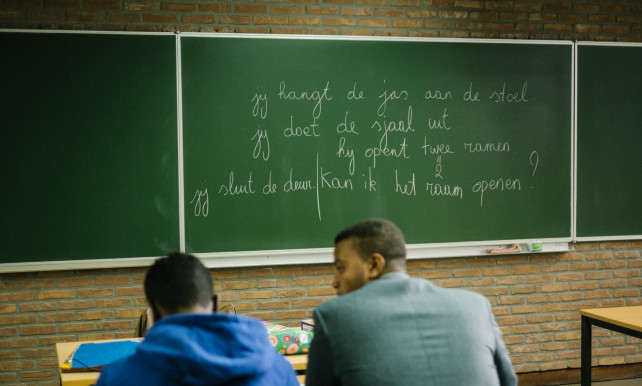 jy hangt de jas aan de stoel
jy doet de sjaal uit
hy opent twee ramen
2
jy sluit de deur. | Kan ik het raam openen ?